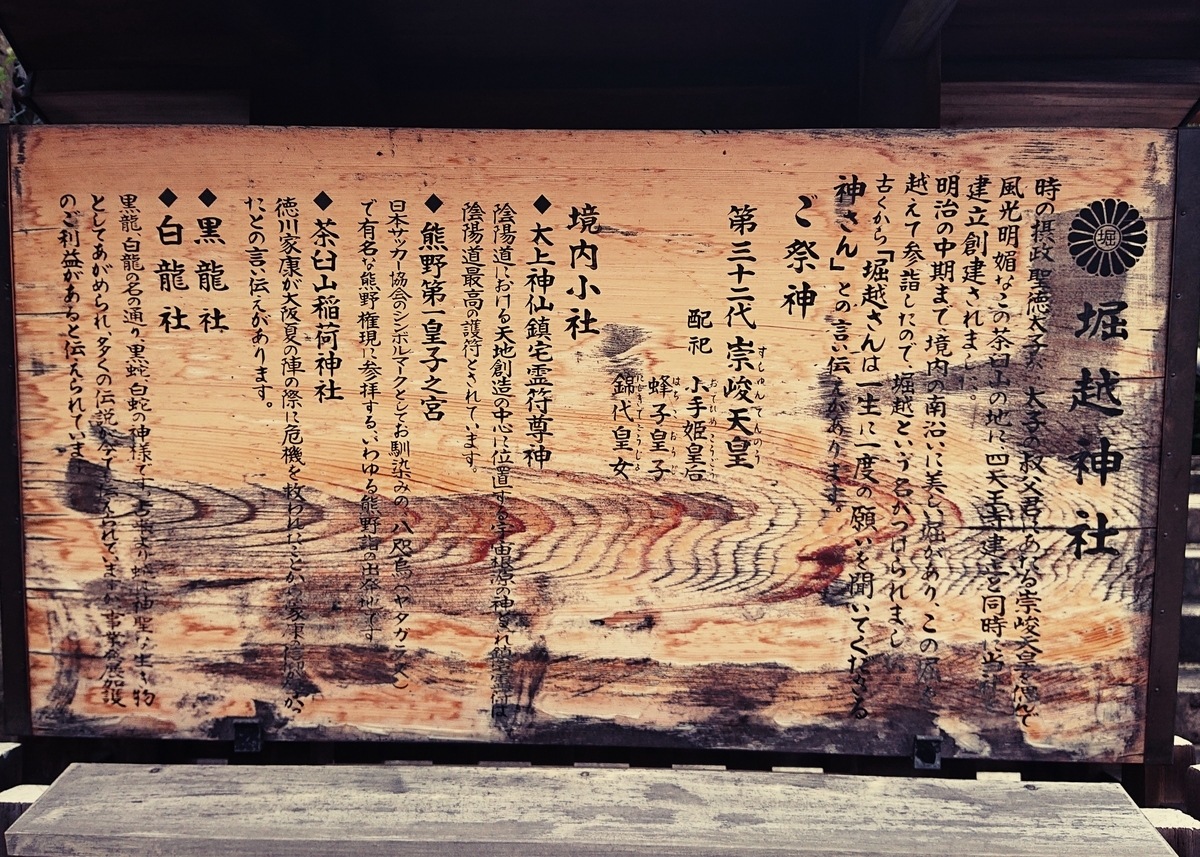 堀
堀越神社
時の摂政 聖徳太子が、太子の叔父君にあたる崇峻天皇を偲んで
風光明媚なこの茶臼山の地に四天王寺建立と同時に当社
建立創建されました。
明治の中期まで境内の南沿いに美しい堀があり、この堀を
越えて参詣したので、堀越という名がつけられました
古くから「堀越さんは一生に一度の願いを聞いてくださる
神さん」との言い伝えがあります。
ご祭神
第三十二代 崇峻天皇
すしゅんてんのう
配祀
小手姫皇后
おてひめこうごう
蜂子皇子
はちこおうじ
錦代皇女
境内小社
◆太上神仙鎮宅霊符尊神
陰陽道における天地創造の中心に位置する宇宙根源の神され鎮宅霊符は
陰陽道最高の護符とされています。
◆熊野第一皇子之宮
日本サッカー協会のシンボルマークとしてお馴染みの、八咫烏(ヤタガラス)
で有名な熊野権現に参拝する、いわゆる熊野詣の出発地です
◆茶臼山稲荷神社
徳川家康が大阪夏の陣の際に危機を救われたことから家康の
たとの言い伝えがあります。
◆黒龍社
◆白龍社
黒龍、白龍の名の通り、黒蛇、白蛇の神様です。古来より蛇は神聖な生き物
としてあがめられ、多くの伝説が今でも伝えられていますが、事業発展加護
のご利益があると伝えられています